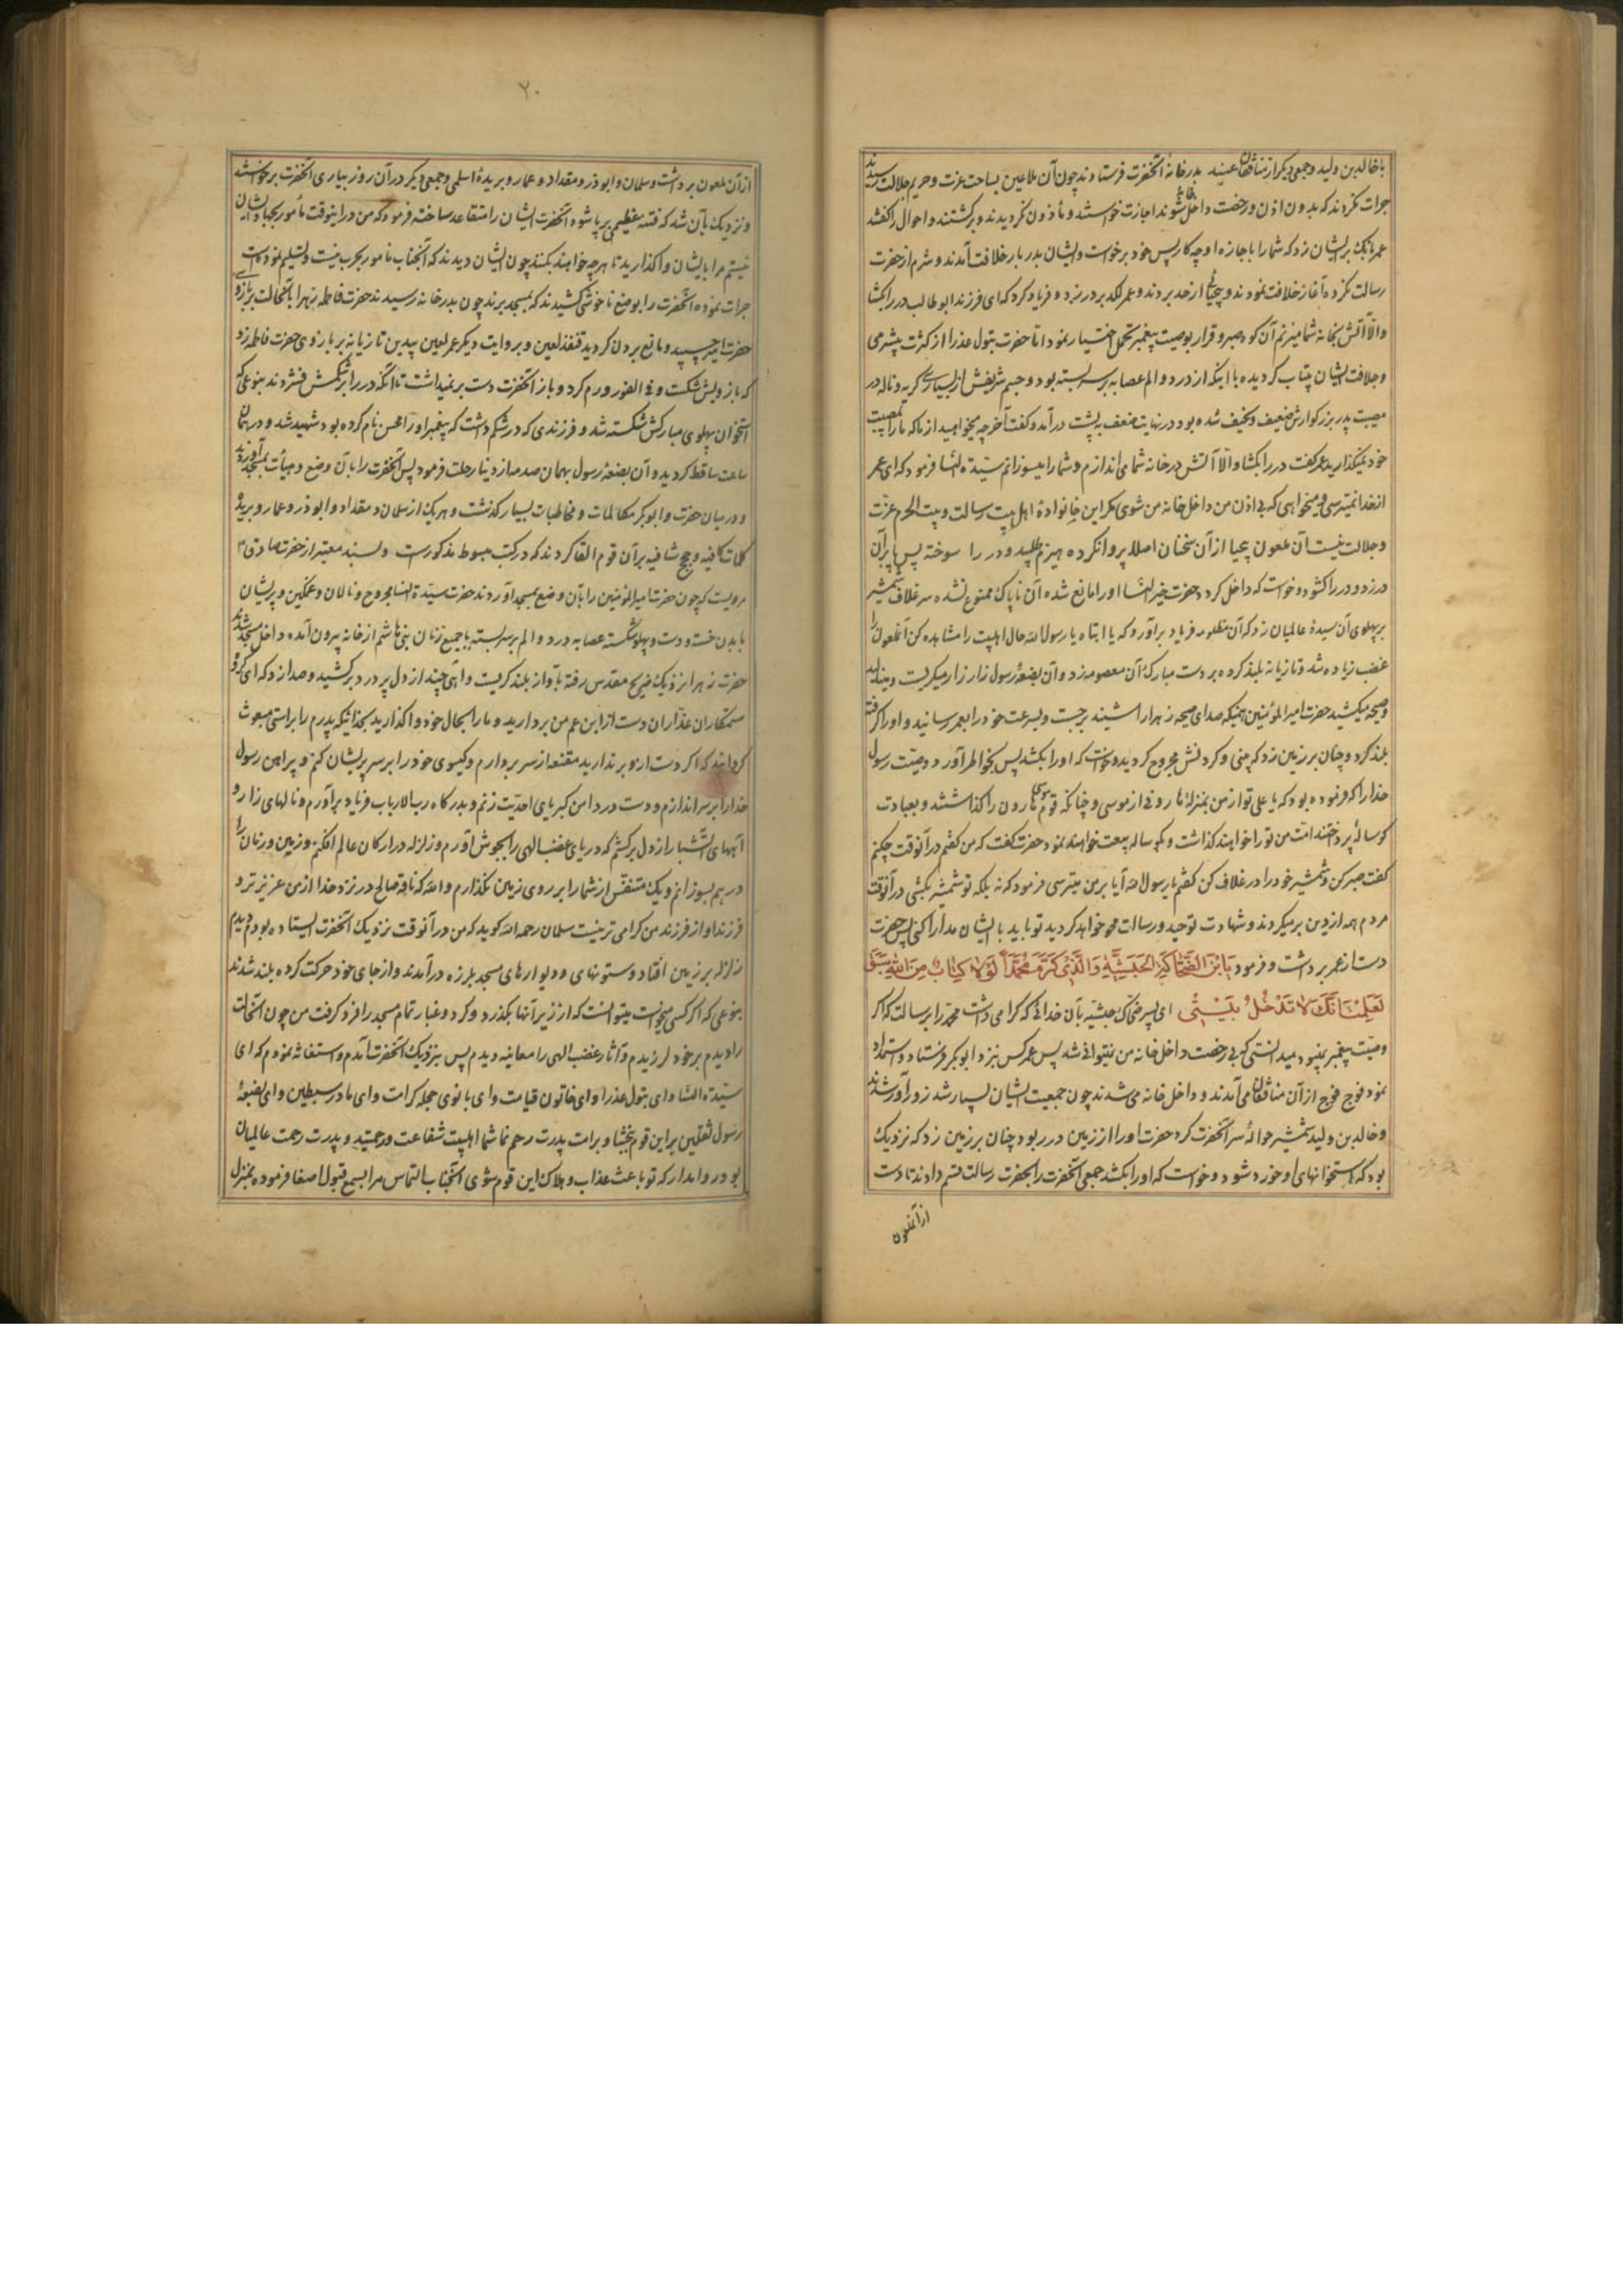 با خالد بن ولید و جمعی دیگر از منافقان عنید بدر خانهٔ آنحضرت فرستادند چون آن ملاعین بساحت عزت و حریم جلالت رسیدند
جرات نکردند که بدون اذن و رخصت داخل خانه شوند اجازت خواستند و ماذون نکردیدند و برکشتند و احوال را کفتند
عمر بانک بر ایشان زد که شما را با جازه او چه کار پس خود برخواست و ایشان بدر بار خلافت آمدند و شرم از حضرت
رسالت نکرده آغاز خلافت نمودند و از حد بردند و عمر لکد بر در زد و فریاد کرد که ای فرزند ابو طالب در را بکشا
و الّا آتش بخانه شما میزنم آن کوه صبر و قرار بوصیت پیغمبر تحمل اختیار نمود اما حضرت بتول عذرا از کثرت بیشرمی
و جلافت ایشان بیتاب کردیده با اینکه از درد و الم عصابه بر سر بسته بود و جسم شریفش از بسیاری کریه و ناله در
مصیبت پدر بزرکوارش ضعیف و نحیف شده بود و در نهایت ضعف به پشت در آمد و کفت آخر چه میخواهید از ما که ما را بمصیبت
خود نمیکذارید عمر کفت در را بکشا و الّا آتش در خانه شما می اندازم و شما را میسوزانم سیّدة النسا فرمود که ای عمر
از خدا نمیترسی و میخواهی که بی اذن من داخل خانه من شوی مکر این خانوادهٔ اهل بیت رسالت و بیت الحرم عزّت
و جلالت نیست آن ملعون بیحیا از آن سخنان اصلا پروا نکرده هیزم طلبید و در را سوخته پس پا بر آن
در زد و در را کشود و خواست که داخل کردد حضرت خیر النسا او را مانع شده آن ناپاک ممنوع نشده سر غلاف شمشیر
بر پهلوی آن سیدهٔ عالمیان زد که آن مظلومه فریاد برآورد که یا ابتاه یا رسول الله حال اهلبیت را مشاهده کن آنملعون را
غضب زیاده شد و تازیانه بلند کرده بر دست مبارک آن معصومه زد و آن بضعهٔ رسول زار زار میکریست و مینالید
و صیحه میکشید حضرت امیر المؤمنین همینکه صدای صیحه زهرا را شنید برجست و بسرعت خود را بعمر رسانید و او را کرفته
بلند کرد و چنان بر زمین زد که بینی و کردنش مجروح کردید و خواست که او را بکشد پس بخواطر آورد وصیّت رسول
خدا را که فرموده بود که یا علی تو از من بمنزلهٔ هارونی از موسی و چنانکه قوم موسی هارون را کذاشتند و بعبادت
کوساله پرداختند امّت من تو را خواهند کذاشت و بکوساله بیعت خواهند نمود حضرت کفت که من کفتم در آنوقت چکنم
کفت صبر کن و شمشیر خود را در غلاف کن کفتم یا رسول الله آیا بر من میترسی فرمود که نه بلکه تو شمشیر بکشی در آنوقت
مردم همه از دین برمیکردند و شهادت توحید و رسالت محو خواهد کردید تو باید با ایشان مدارا کنی پس حضرت
دست از عمر برداشت و فرمود یَابْنَ الضَّحّاکَةِ الحَبَشِیَّةِ وَالَّذی کَرَّمَ مُحَمَّداً لَوْلا کِتابٌ مِنَ اللهِ سَبَقَ
لَعَلِمْتَ اَنَّکَ لا تَدْخُلُ بَیْتی ای پسر ضحاک حبشیّه بآن خدائی که کرامی داشت محمّد را برسالت که اکر
وصیّت پیغمبر نبود میدانستی که بی رخصت داخل خانه من نمیتوانی شد پس عمر کس نزد ابوبکر فرستاد و استمداد
نمود فوج فوج از آن منافقان می آمدند و داخل خانه می شدند چون جمعیت ایشان بسیار شد زورآور شدند
و خالد بن ولید شمشیر حوالهٔ سر آنحضرت کرد حضرت او را از زمین در ربود چنان بر زمین زد که نزدیک
بود که استخوانهای او خورد شود و خواست که او را بکشد جمعی آنحضرت را بحضرت رسالت قسم دادند تا دست
از آنملعون
۲۰
از آن ملعون برداشت و سلمان و ابوذر و مقداد و عمار و بریدهٔ اسلمی و جمعی دیکر در آن روز بیاری آنحضرت برخواستند
و نزدیک بآن شد که فتنه عظیمی برپا شود آنحضرت ایشان را متقاعد ساخته فرمود که من در اینوقت مأمور بجهاد ایشان
نیستم مرا بایشان واکذارید تا هر چه خواهند بکنند چون ایشان دیدند که آنجناب مامور بحرب نیست و تسلیم نموده است
جرات نموده آنحضرت را بوضع ناخوشی کشیدند که بمسجد برند چون بدر خانه رسیدند حضرت فاطمه زهرا بآنحالت بر بازوی
حضرت امیر چسپید و مانع بردن کردید قنفذ لعین و بروایت دیکر عمر لعین بیدین تازیانه بر بازوی حضرت فاطمه زد
که بازویش شکست و فی الفور ورم کرد و باز آنحضرت دست برنمیداشت تا آنکه در را بر شکمش فشردند بنوعی که
استخوان پهلوی مبارکش شکسته شد و فرزندی که در شکم داشت که پیغمبر او را محسن نام کرده بود شهید شد و در همان
ساعت ساقط کردید و آن بضعهٔ رسول بهمان صدمه از دنیا رحلت فرمود پس آنحضرت را بآن وضع و هیأت بمسجد آوردند
و در میان حضرت و ابوبکر مکالمات و مخاطبات بسیار کذشت و هر یک از سلمان و مقداد و ابوذر و عمار و بریده
کلمات کافیه و حجج شافیه بر آن قوم القا کردند که در کتب مبسوط مذکور است و بسند معتبر از حضرت صادق ع
مرویست که چون حضرت امیر المؤمنین را بآن وضع بمسجد آوردند حضرت سیّدة النسا مجروح و نالان و غمکین و پریشان
با بدن خسته و دست و پهلو شکسته عصابه درد و الم بر سر بسته با جمیع زنان بنی هاشم از خانه بیرون آمده داخل مسجد شدند
حضرت زهرا نزدیک ضریح مقدس رفته بآواز بلند کریست و آهی چند از دل پر درد برکشید و صدا زد که ای کروه
ستمکاران غدّاران دست از ابن عم من بردارید و ما را بحال خود واکذارید بخدائیکه پدرم را براستی مبعوث
کردانید که اکر دست از او برندارید مقنعه از سر بردارم و کیسوی خود را بر سر پریشان کنم و پیراهن رسول
خدا را بر سر اندازم و دست در دامن کبریای احدیّت زنم و بدرکاه رب الارباب فریاد برآورم و نالهای زار و
آههای آتشبار از دل برکشم که دریای غضب الهی را بجوش آورم و زلزله در ارکان عالم افکنم و زمین و زمان را
در هم بسوزانم و یک متنفّس از شما را بر روی زمین نکذارم والله که ناقه صالح در نزد خدا از من عزیزتر و
فرزند او از فرزند من کرامی تر نیست سلمان رحمه الله کوید که من در آنوقت نزدیک آنحضرت ایستاده بودم دیدم
زلزله بر زمین افتاد و ستونهای و دیوارهای مسجد بلرزه درآمدند و از جای خود حرکت کرده بلند شدند
بنوعی که اکر کسی میخواست میتوانست که از زیر آنها بکذرد و کرد و غبار تمام مسجد را فرو کرفت من چون آنحالت
را دیدم بر خود لرزیدم و آثار غضب الهی را معاینه دیدم پس بنزدیک آنحضرت آمدم و استغاثه نمودم که ای
سیّدة النسا و ای بتول عذرا و ای خاتون قیامت و ای بانوی حجله کرامت و ای مادر سبطین و ای بضعهٔ
رسول ثقلین بر این قوم ببخشا و بر امت پدرت رحم نما شما اهلبیت شفاعت و رحمتید و پدرت رحمت عالمیان
بود روا مدار که تو باعث عذاب و هلاک این قوم شوی آنجناب التماس مرا بسمع قبول اصغا فرموده بمنزل